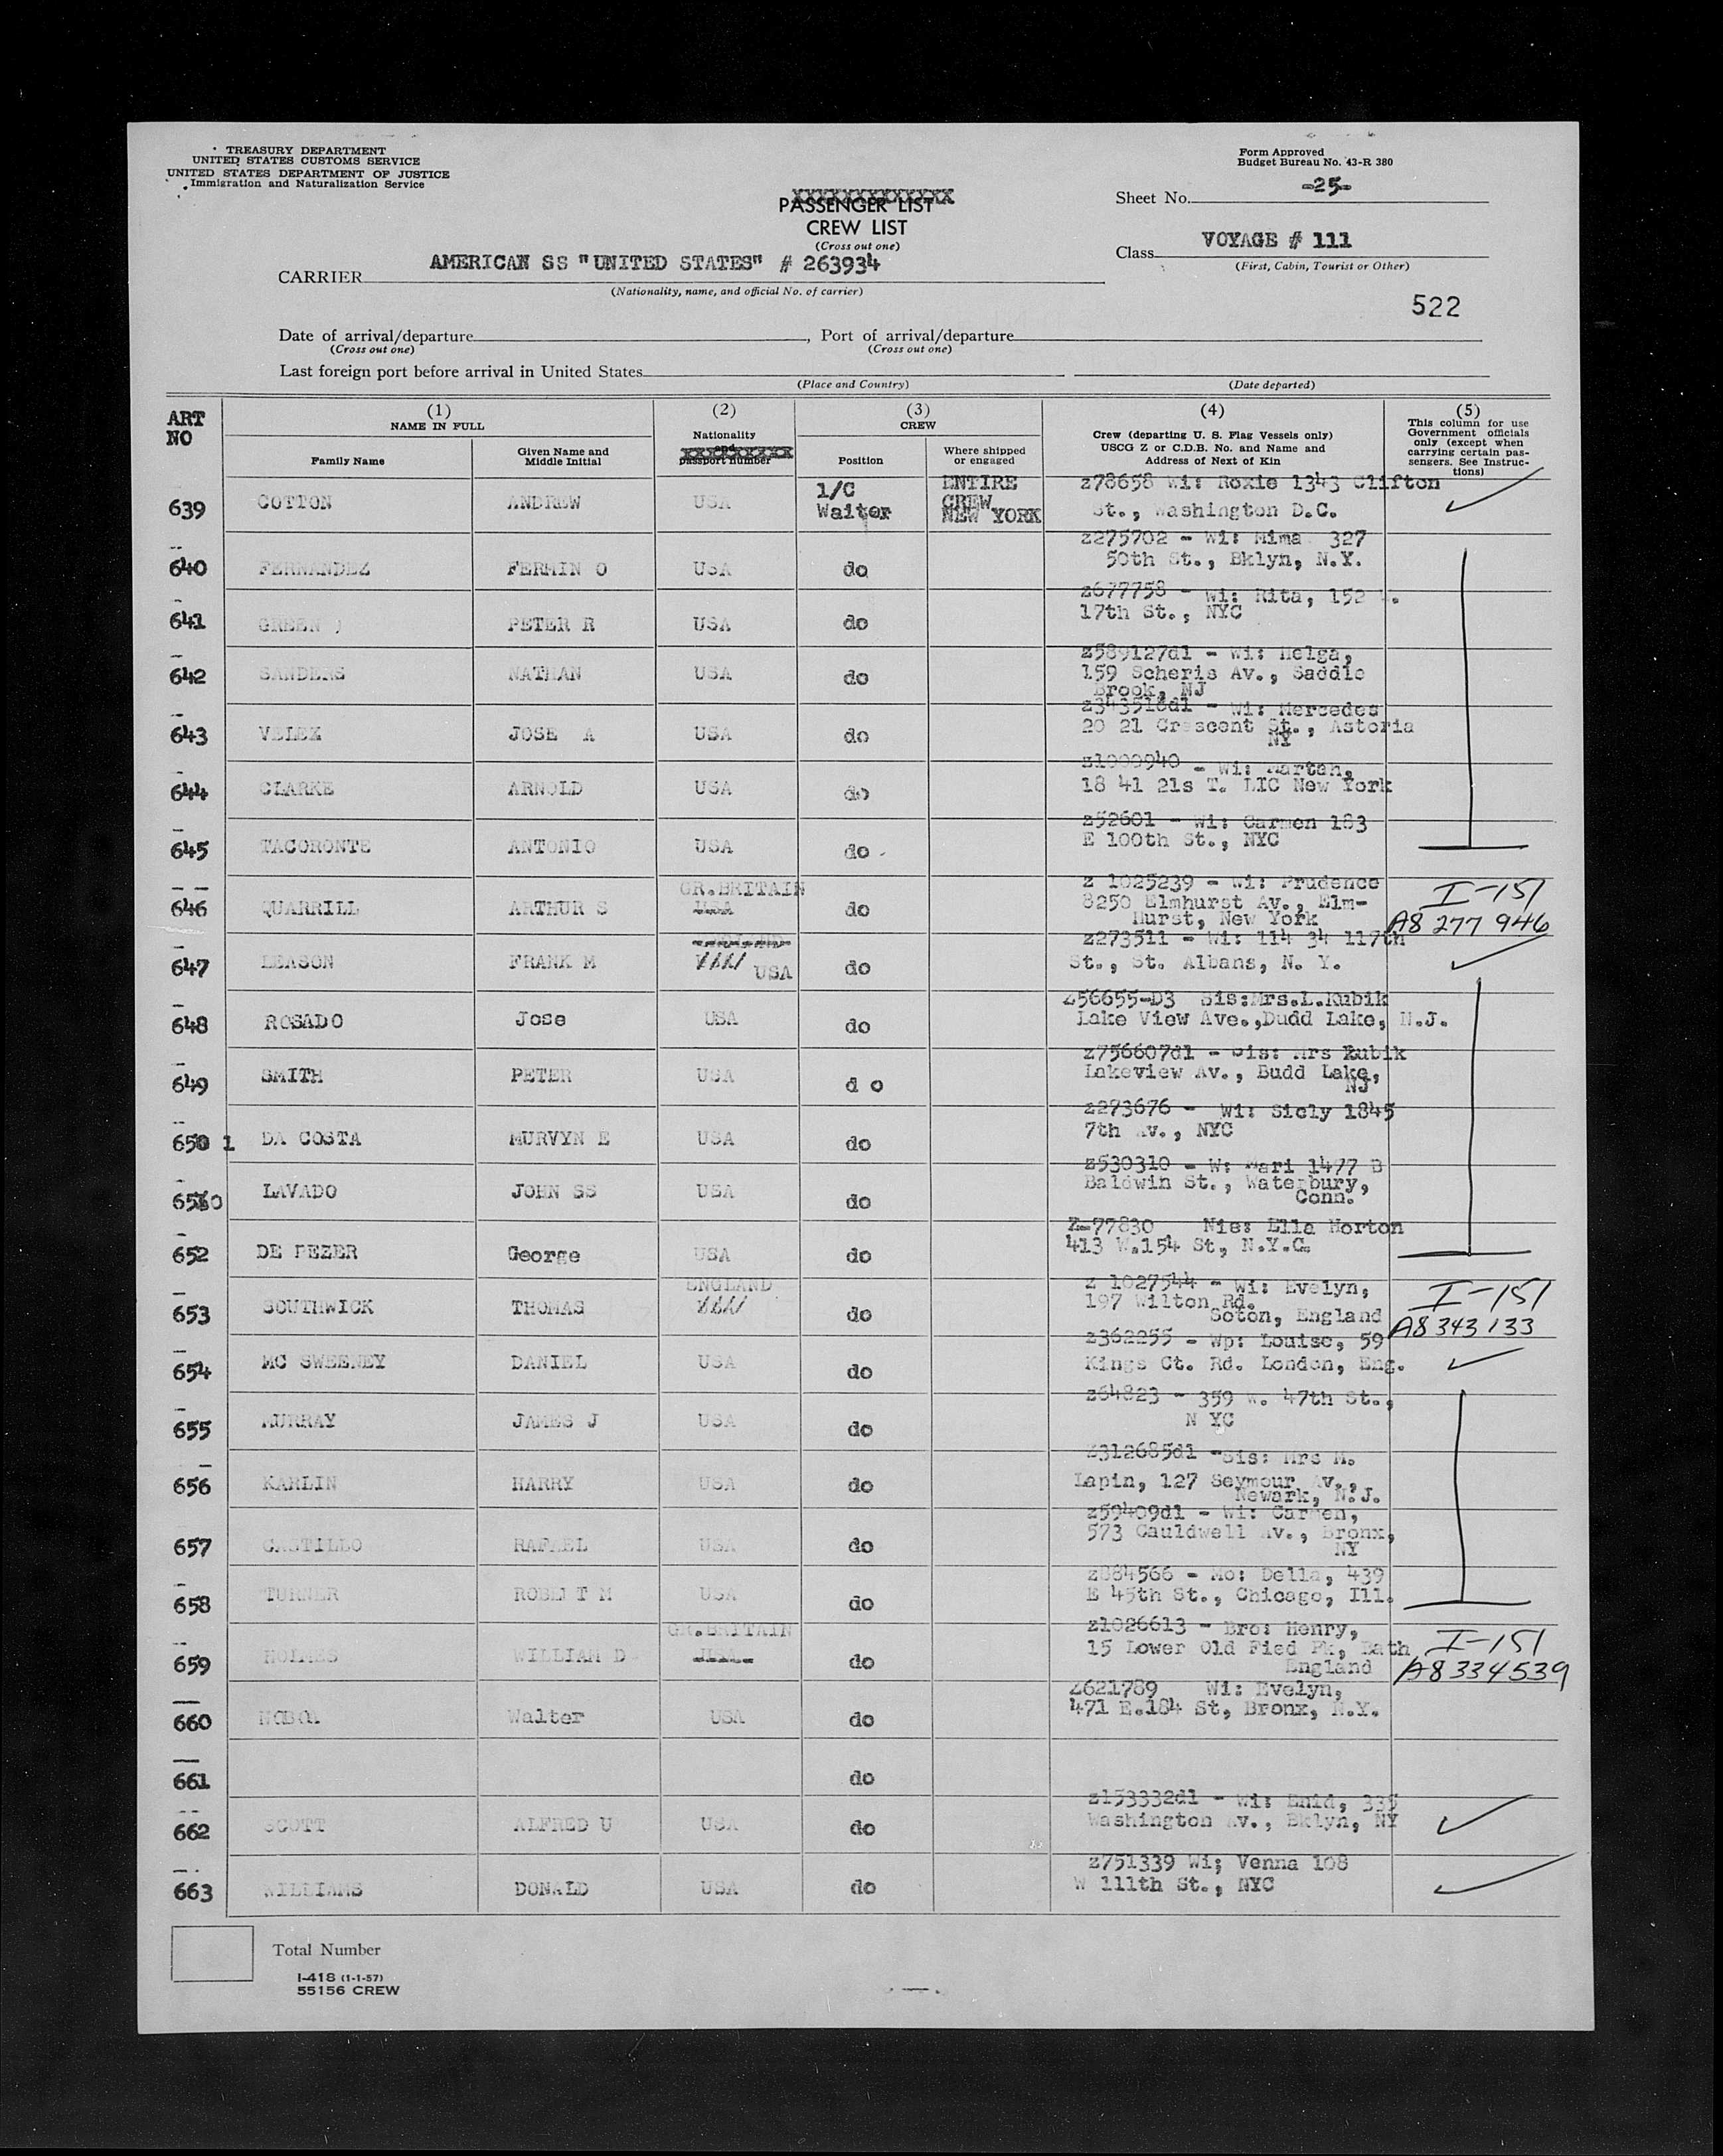 TREASURY DEPARTMENT
UNITED STATES CUSTOMS SERVICE
UNITED STATES DEPARTMENT OF JUSTICE
Immigration and Naturalization Service
Form Approved
Budget Bureau No. 43-R 380
Sheet No. -25-
XXXXXXXXXXXXX
PASSENGER LIST
CREW LIST
(Cross out one)
Class VOYAGE # 111
(First, Cabin, Tourist or Other)
CARRIER AMERICAN SS "UNITED STATES" # 263934
(Nationality, name, and official No. of carrier)
522
Date of arrival/departure , Port of arrival/departure
(Cross out one) (Cross out one)
Last foreign port before arrival in United States
(Place and Country) (Date departed)
ART
NO
(1)
NAME IN FULL
Family Name
Given Name and
Middle Initial
(2)
Nationality
and
passport number
(3)
CREW
Position
Where shipped
or engaged
(4)
Crew (departing U. S. Flag Vessels only)
USCG Z or C.D.B. No. and Name and
Address of Next of Kin
(5)
This column for use
Government officials
only (except when
carrying certain pas-
sengers. See Instruc-
tions)
639 COTTON ANDREW USA 1/C Waiter ENTIRE CREW NEW YORK z78658 Wi: Roxie 1343 Clifton
St., Washington D.C.
640 FERNANDEZ FERMIN O USA do z275702 - Wi: Mima 327
50th St., Bklyn, N.Y.
641 GREEN PETER R USA do z677758 - Wi: Rita, 152
17th St., NYC
642 SANDERS NATHAN USA do z589127d1 - Wi: Helga,
159 Scheris Av., Saddle
Brook, NJ
643 VELEZ JOSE A USA do z343518d1 - Wi: Mercedes
20 21 Crescent St., Astoria
NY
644 CLARKE ARNOLD USA do - Wi: Martah,
18 41 21s T. LIC New York
645 TACORONTE ANTONIO USA do z52601 - Wi: Carmen 183
E 100th St., NYC
646 QUARRILL ARTHUR S GR.BRITAIN USA do z 1025239 - Wi: Prudence
8250 Elmhurst Av., Elm-
Hurst, New York
I-151
A8 277 946
647 LEASON FRANK M USA do z273511 - Wi: 114 34 117th
St., St. Albans, N. Y.
648 ROSADO Jose USA do Z56655-D3 Sis:Mrs.L.Kubik
Lake View Ave.,Dudd Lake, N.J.
649 SMITH PETER USA d o z756607d1 - Sis: Mrs Rubik
Lakeview Av., Budd Lake,
NJ
650 1 DA COSTA MURVYN E USA do z273676 - Wi: Sicly 1845
7th Av., NYC
LAVADO JOHN SS USA do z530310 - W: Mari 1477 B
Baldwin St., Waterbury,
Conn.
652 DE PEZER George USA do Z-77830 Nie: Ella Morton
413 W.154 St, N.Y.C.
653 SOUTHWICK THOMAS ENGLAND do z 1027544 - Wi: Evelyn,
197 Wilton Rd.
Soton, England
I-151
A8 343 133
654 MC SWEENEY DANIEL USA do z362255 - Wp: Louise, 59
Kings Ct. Rd. London, Eng.
655 MURRAY JAMES J USA do z64823 - 359 W. 47th St.,
N YC
656 KARLIN HARRY USA do z312685d1 -Sis: Mrs M.
Lapin, 127 Seymour Av.,
Newark, N.J.
657 CASTILLO RAFAEL USA do z59409d1 - Wi: Carmen,
573 Cauldwell Av., Bronx,
NY
658 TURNER ROBERT M USA do z884566 - Mo: Della, 439
E 45th St., Chicago, Ill.
659 HOLMES WILLIAM D GR.BRITAIN USA do z1026613 - Bro: Henry,
15 Lower Old Fied Pk, Bath
England
I-151
A8 334539
660 Walter USA do Z621789 Wi: Evelyn,
471 E.184 St, Bronx, N.Y.
661 do
662 SCOTT ALFRED U USA do z153332d1 - Wi: Enid, 335
Washington Av., Bklyn, NY
663 WILLIAMS DONALD USA do z751339 Wi; Venna 108
W 111th St., NYC
Total Number
I-418 (1-1-57)
55156 CREW